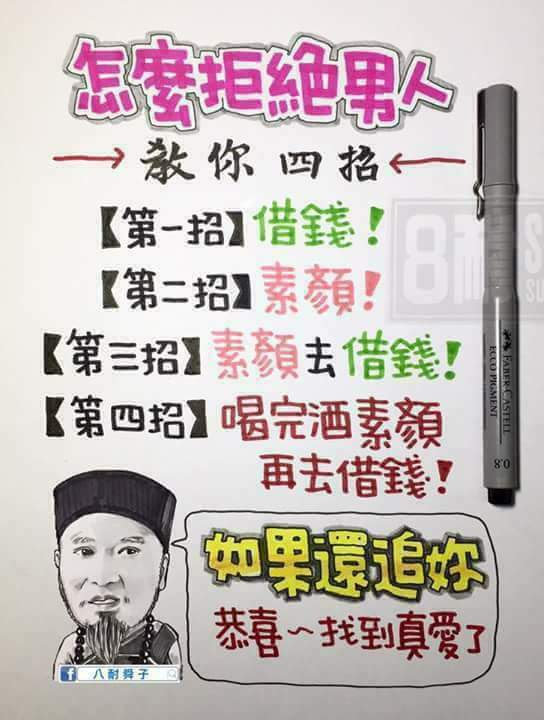 怎麼拒絕男人
教你四招
【第一招】借錢！
【第二招】素顏！
【第三招】素顏去借錢！
【第四招】喝完酒素顏
再去借錢！
如果還追妳
恭喜～找到真愛了
八耐舜子
FABER-CASTELL
ECCO PIGMENT
0.8